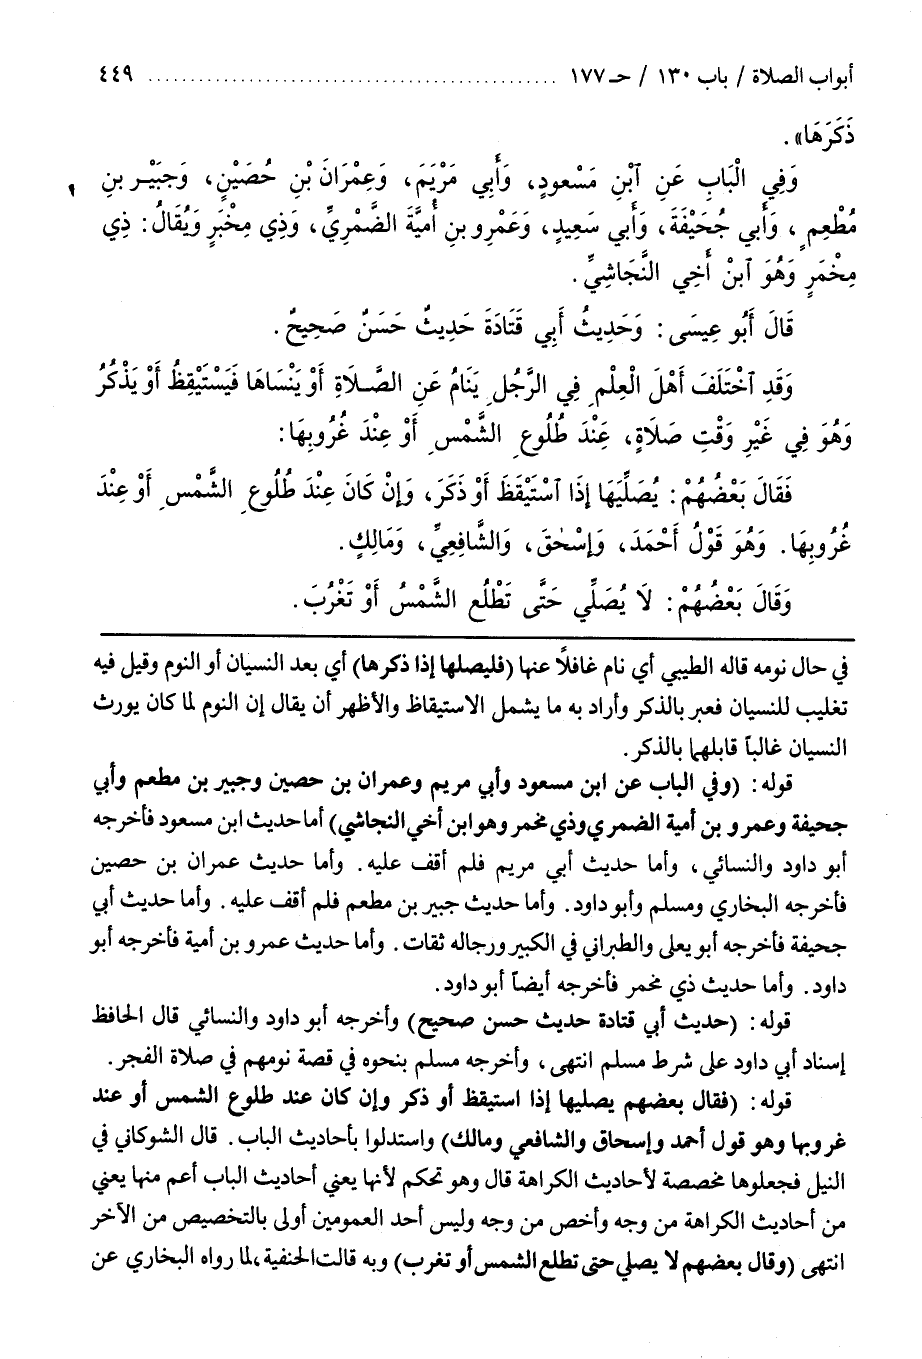 أبواب الصلاة / باب ١٣٠ / حـ ١٧٧ ................................................ ٤٤٩
ذَكَرَهَا» .
وَفِي الْبَابِ عَنِ ٱبْنِ مَسْعودٍ، وَأَبِي مَرْيَمَ، وَعِمْرَانَ بْنِ حُصَيْنٍ، وَجبَيْرِ بنِ
مُطْعِمٍ، وَأَبي جُحَيْفَةَ، وَأَبي سَعِيدٍ، وَعَمْرِو بنِ أُمَيَّةَ الضَّمْرِيِّ، وَذي مِخْبَرٍ وَيُقَالُ: ذِي
مِخْمَرٍ وَهُوَ ٱبنْ أَخي النَّجَاشيِّ .
قَالَ أَبُو عِيسَى : وَحَدِيثُ أَبي قَتَادَةَ حَدِيثٌ حَسَنٌ صَحِيحٌ .
وَقَدِ ٱخْتَلَفَ أَهْلَ الْعِلْمِ فِي الرَّجُلِ يَنَامُ عَنِ الصَّلَاةِ أَوْ يَنْسَاهَا فَيَسْتَيْقِظُ أَوْ يَذْكُرُ
وَهُوَ فِي غَيْرِ وَقْتِ صَلَاةٍ، عِنْدَ طُلُوعِ الشَّمْسِ أَوْ عِنْدَ غُرُوبِهَا:
فَقَالَ بَعْضُهُمْ : يُصَلِّيَهَا إِذَا ٱسْتَيْقَظَ أَوْ ذَكَرَ، وَإِنْ كَانَ عِنْدَ طُلُوعِ الشَّمْسِ أَوْ عِنْدَ
غُرُوبِهَا. وَهُوَ قَوْلُ أَحْمَدَ، وَإِسْحٰقَ، وَالشَّافِعِيِّ، وَمَالِكٍ.
وَقَالَ بَعْضُهُمْ : لَا يُصَلِّي حَتَّى تَطْلُع الشَّمْسُ أَوْ تَغْرُبَ .
في حال نومه قاله الطيبي أي نام غافلاً عنها (فليصلها إذا ذكرها) أي بعد النسيان أو النوم وقيل فيه
تغليب للنسيان فعبر بالذكر وأراد به ما يشمل الاستيقاظ والأظهر أن يقال إن النوم لما كان يورث
النسيان غالباً قابلهما بالذكر .
قوله : (وفي الباب عن ابن مسعود وأبي مريم وعمران بن حصين وجبير بن مطعم وأبي
جحيفة وعمرو بن أمية الضمري وذي مخمر وهو ابن أخي النجاشي) أما حديث ابن مسعود فأخرجه
أبو داود والنسائي، وأما حديث أبي مريم فلم أقف عليه. وأما حديث عمران بن حصين
فأخرجه البخاري ومسلم وأبو داود. وأما حديث جبير بن مطعم فلم أقف عليه. وأما حديث أبي
جحيفة فأخرجه أبو يعلى والطبراني في الكبير ورجاله ثقات. وأما حديث عمرو بن أمية فأخرجه أبو
داود. وأما حديث ذي مخمر فأخرجه أيضاً أبو داود.
قوله : (حديث أبي قتادة حديث حسن صحيح) وأخرجه أبو داود والنسائي قال الحافظ
إسناد أبي داود على شرط مسلم انتهى، وأخرجه مسلم بنحوه في قصة نومهم في صلاة الفجر.
قوله : (فقال بعضهم يصليها إذا استيقظ أو ذكر وإن كان عند طلوع الشمس أو عند
غروبها وهو قول أحمد وإسحاق والشافعي ومالك) واستدلوا بأحاديث الباب. قال الشوكاني في
النيل فجعلوها مخصصة لأحاديث الكراهة قال وهو تحكم لأنها يعني أحاديث الباب أعم منها يعني
من أحاديث الكراهة من وجه وأخص من وجه وليس أحد العمومين أولى بالتخصيص من الآخر
انتهى (وقال بعضهم لا يصلي حتى تطلع الشمس أو تغرب) وبه قالت الحنفية، لما رواه البخاري عن